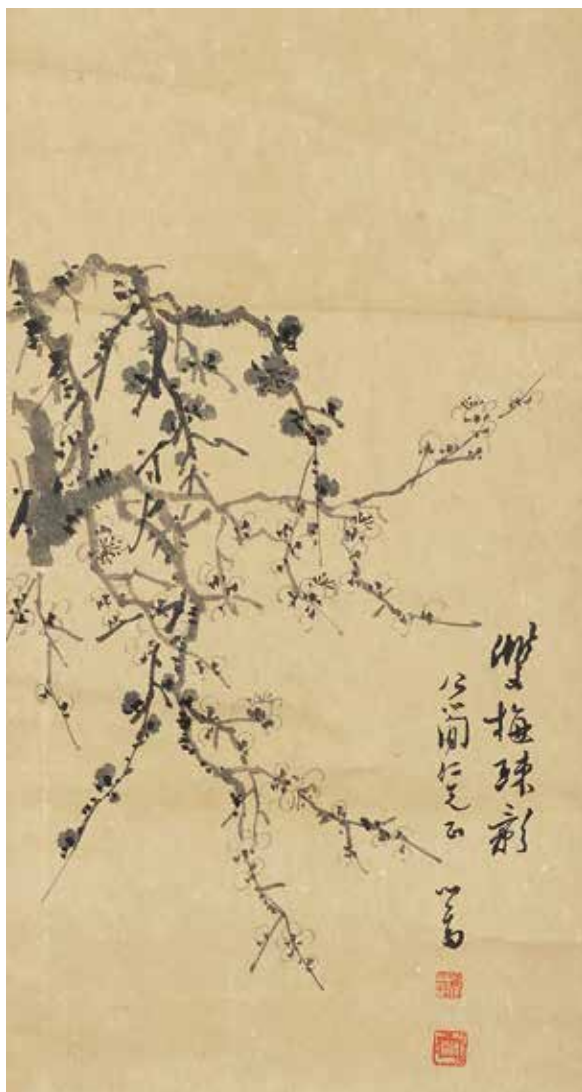 雙梅疎影
公簡仁兄正 心畬